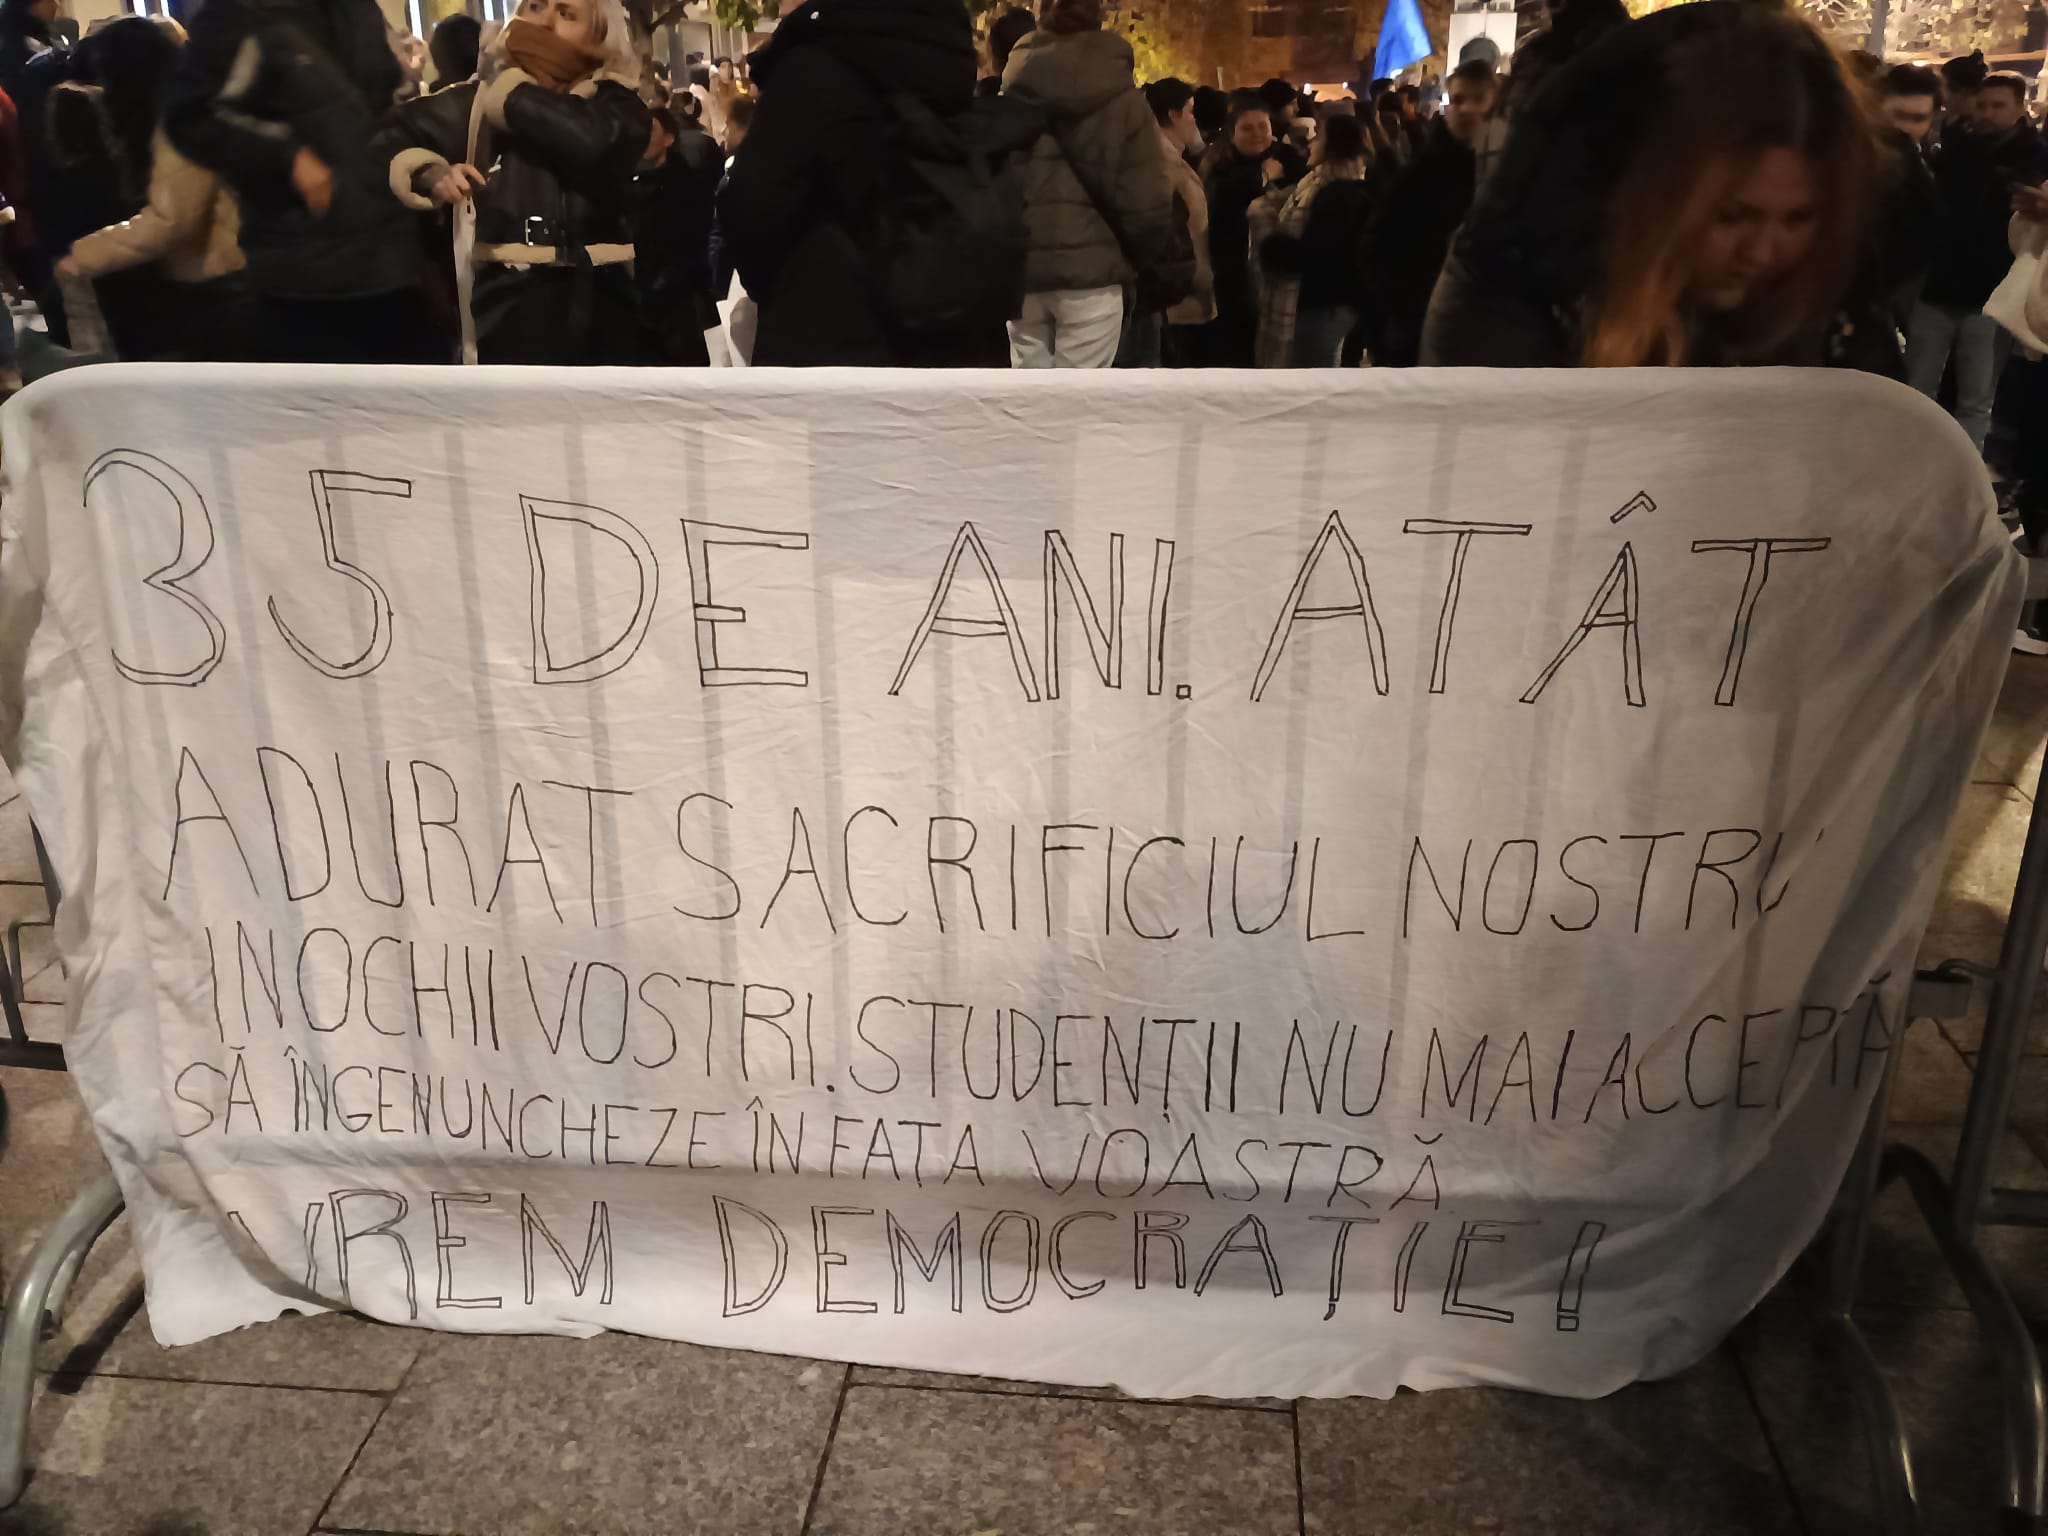 35 DE ANI. ATÂT
A DURAT SACRIFICIUL NOSTRU
IN OCHII VOSTRI. STUDENȚII NU MAI ACCEPTĂ
SĂ ÎNGENUNCHEZE ÎN FAȚA VOASTRĂ
VREM DEMOCRAȚIE!